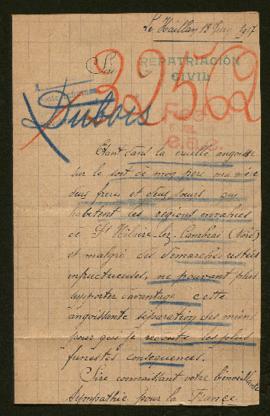 Le Haillan 18 Juin 1917
Sire
REPATRIACIÓN
CIVIL
32562
Dubois
Etant dans la cruelle angoisse
sur le sort de mon père ma mère
deux frères et deux sœurs qui
habitent les régions envahies
de St Hilaire-lez-Cambrai (Nord)
et malgré des démarches restées
infructueuses, ne pouvant plus
supporter davantage cette
angoissante séparation des miens
pour que je redoute les plus
funestes conséquences.
Sire connaissant votre bienveillante
sympathie pour la France